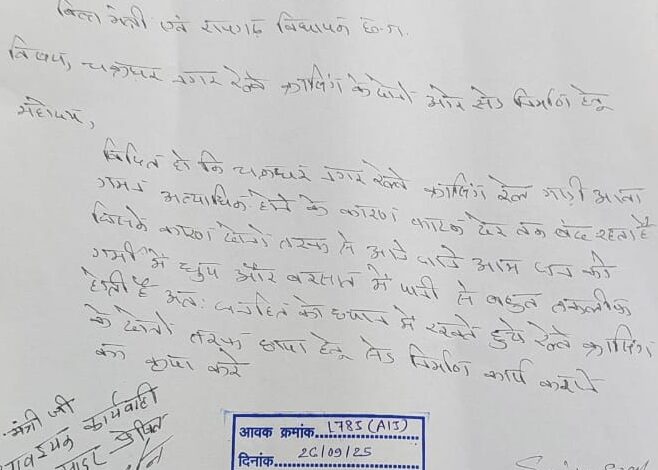 वित्त मंत्री एवं रायगढ़ विधायक छ.ग.
विषय, चक्रधर नगर रेल्वे क्रासिंग के दोनों ओर सेड निर्माण हेतू
महोदय,
विदित हो कि चक्रधर नगर रेल्वे क्रासिंग रेल गाड़ी आवा
गमन अत्याधिक होने के कारण फाटक देर तक बंद रहता है
जिसके कारण दोनों तरफ से आने जाने आम जन को
गर्मी में धुप और बरसात में पानी से बहुत तकलीफ
होती है अत: जनहित को ध्यान में रखते हुये रेल्वे क्रासिंग
के दोनों तरफ छाया हेतू सेड निर्माण कार्य कराने
का कृपा करे
मंत्री जी
आवश्यक कार्यवाही
आवक क्रमांक..1785 (A13)
दिनांक..26/09/25